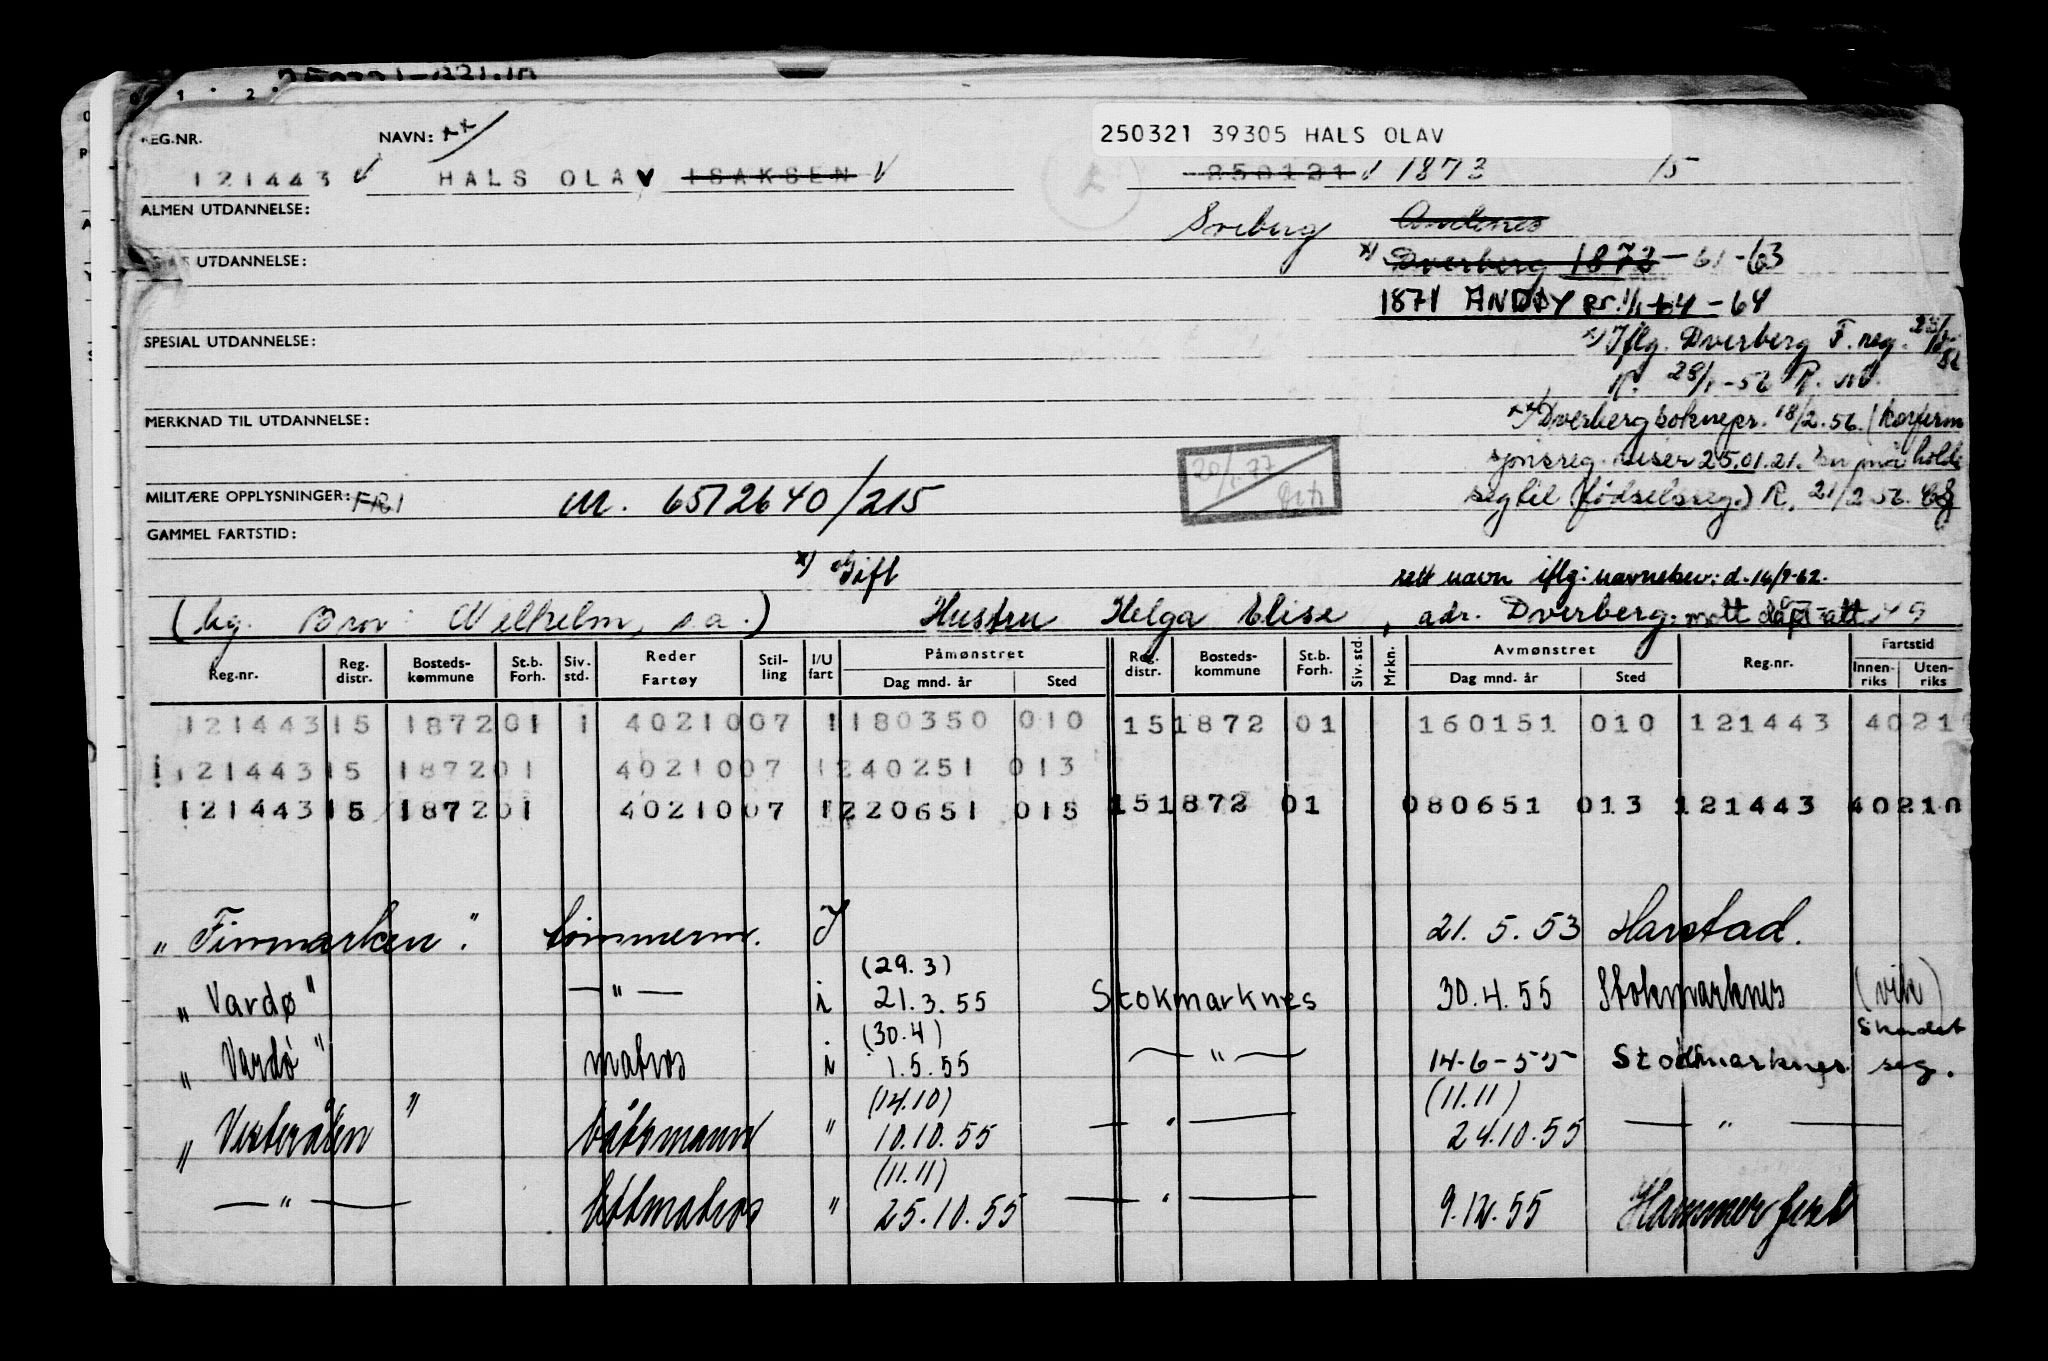 250321 39305 HALS OLAV
REG.NR. NAVN: xx/
121443 HALS OLAV ISAKSEN 250121 1873 15
ALMEN UTDANNELSE:
Andenes
UTDANNELSE: x) Dverberg 1872 - 61 - 63
1871 ANDØY pr. 1/1-64 - 64
SPESIAL UTDANNELSE: x) Iflg. Dverberg F.reg.
R. 28/1-56 R.
MERKNAD TIL UTDANNELSE: xx) Dverberg soknepr. 18/2.56. (konfirm
sjonsreg. viser 25.01.21. holde
MILITÆRE OPPLYSNINGER: FRI M. 6512640/215 seg til (fødselsreg.) R. 21/2 56.
GAMMEL FARTSTID:
x) Gift rett navn iflg: navnebev: d. 14/9-62.
(hg. Bror: Wilhelm, s.a.) Hustru Helga Elise, adr. Dverberg. mott 49
Reg.nr. Reg. distr. Bosteds-kommune St.b. Forh. Siv. std. Reder Fartøy Stil-ling I/U fart Påmønstret Dag mnd. år Sted Reg. distr. Bosteds-kommune St.b. Forh. Siv. std. Mrkn. Avmønstret Dag mnd. år Sted Reg.nr. Fartstid Innen-riks Uten-riks
121443 15 1872 01 1 4021007 1 180350 010 15 1872 01 160151 010 121443 4021
121443 15 1872 01 4021007 1 240251 013
121443 15 1872 01 4021007 1 220651 015 15 1872 01 080651 013 121443 40210
"Finmarken". tømmerm. I 21.5.53 Harstad.
(29.3)
"Vardø" — " — i 21.3.55 Stokmarknes 30.4.55 Stokmarknes (vik)
(30.4) Skadet
"Vardø" matros i 1.5.55 — " — 14-6-55 Stokmarknes seg.
(14.10) (11.11)
"Vesterålen" båtsmann " 10.10.55 — " — 24.10.55 — " —
(11.11)
— " — lettmatros " 25.10.55 — " — 9.12.55 Hammerfest